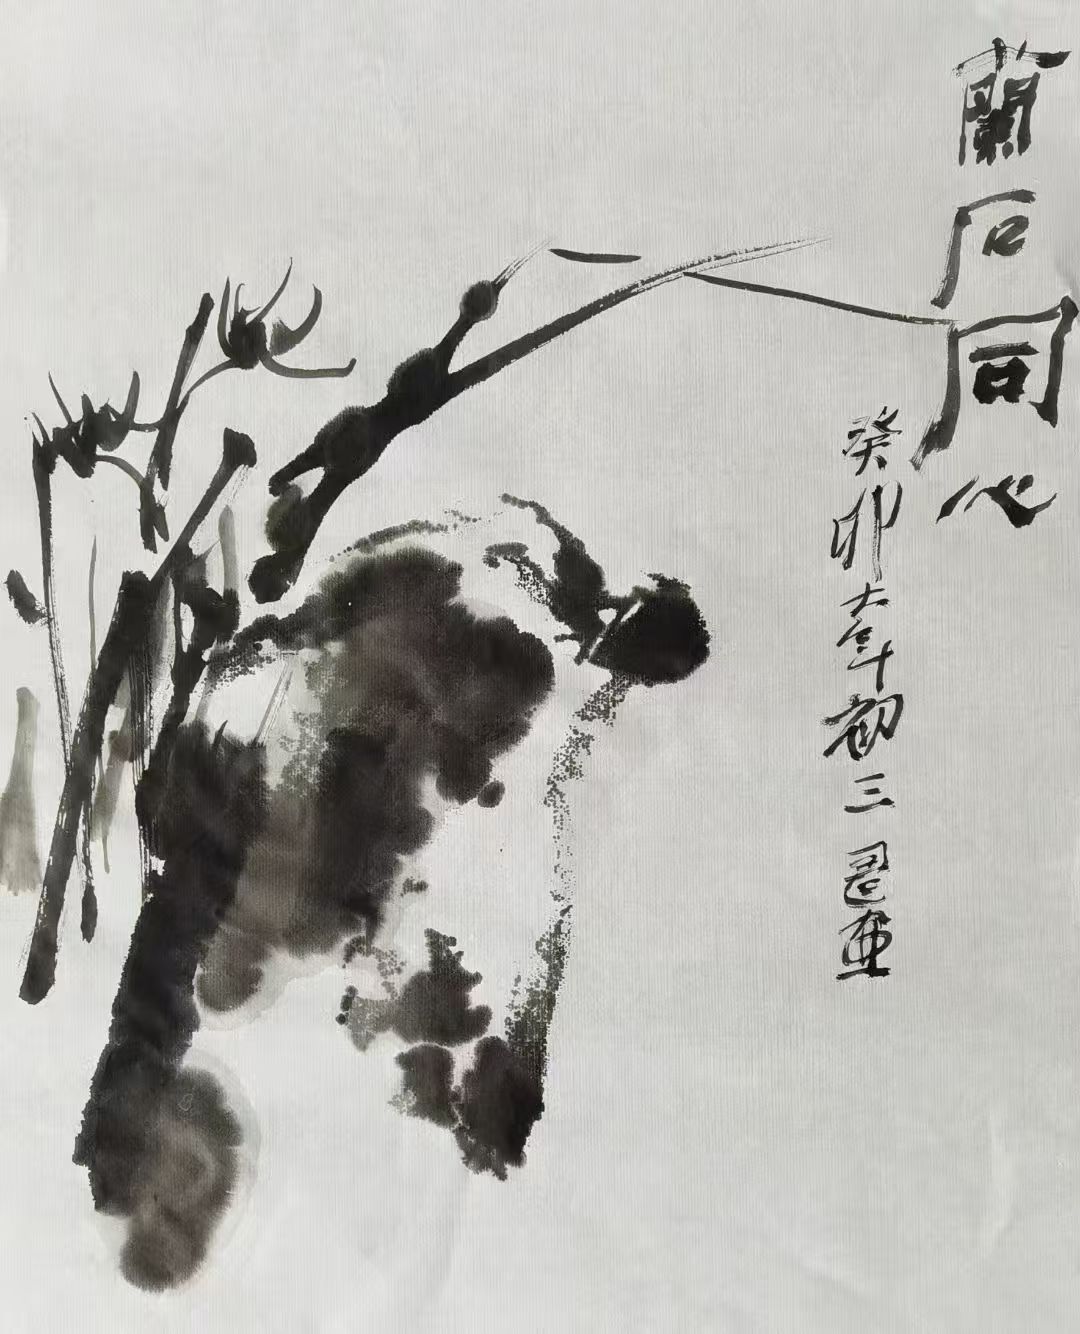 蘭石同心
癸卯大年初三画